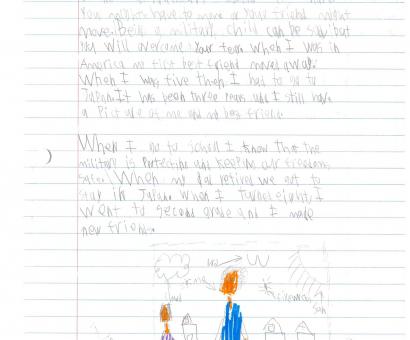 You might have to move or your friend might
move. Being a military child can be sad but
you will overcome your tears. When I was in
America me first best friend moved away.
When I was five then I had to go to
Japan. It has been three years and I still have
a picture of me and my best friend.
When I go to school I know that the
military is protecting and keeping our freedoms
safe. When my dad retired we got to
stay in Japan. When I turned eight, I
went to second grade and I made
new friends.
me
sun